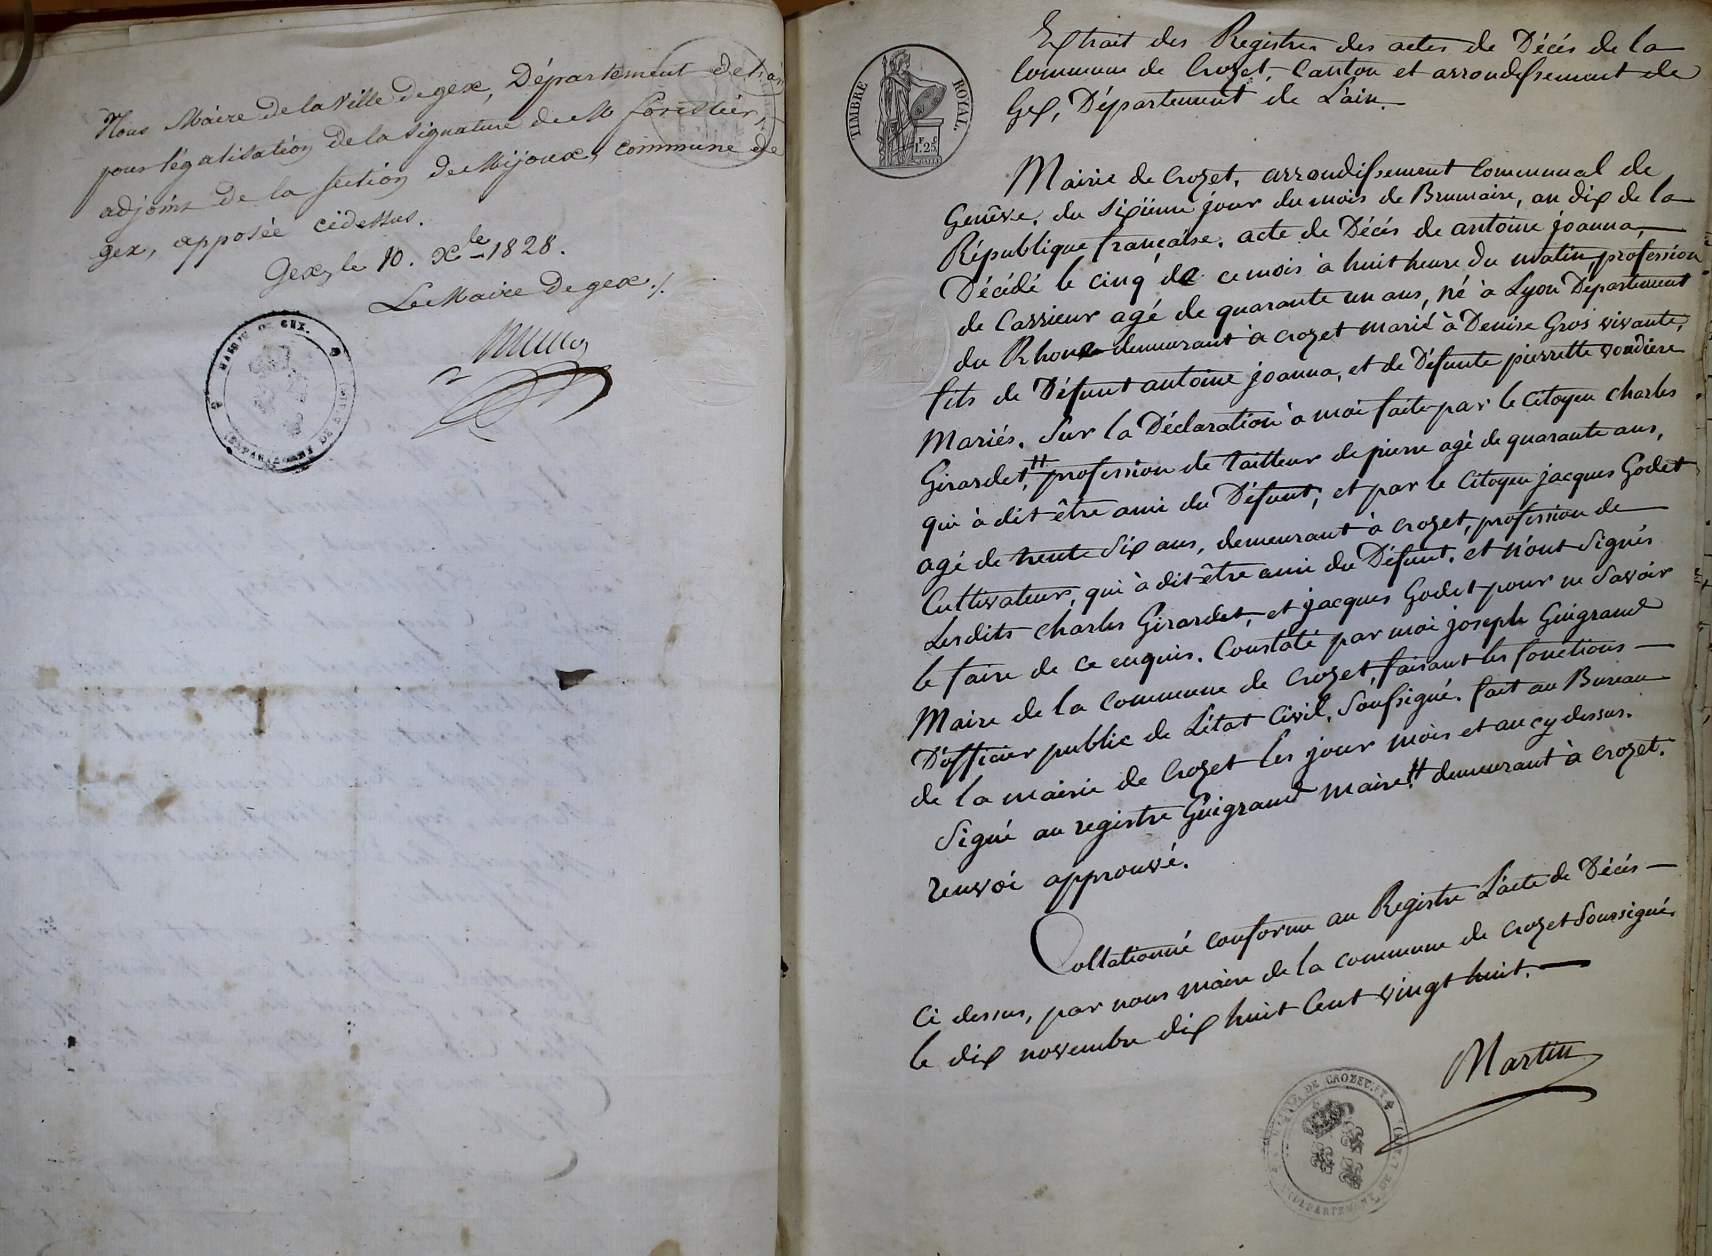 Nous Maire de la Ville de gex, Département de l'ain
pour légalisation de la signature de M forestier,
adjoint de la section de Mijoux, commune de
gex, apposée cidessus.
Gex, le 10. Xbre 1828.
Le Maire de gex ./.
MAIRIE DE GEX.
DÉPARTEMENT DE L'AIN
Extrait des Registres des actes de Décés de la
Commune de Crozet, Canton et arrondissement de
Gex, Département de L'ain.
TIMBRE ROYAL.
1.25
Mairie de Crozet, arrondissement Communal de
Genêve, du sixiême jour du mois de Brumaire, an dix de la
République française. acte de Décés de antoine joanna,
Décédé le cinq de ce mois à huit heure du matin, profession
de Carrieur agé de quarante un ans, né à Lyon Département
du Rhone demeurant à crozet marié à Denise Gros vivante,
fils de Défunt antoine joanna, et de Défunte pierrette vondiere
Mariés. Sur la Déclaration à moi faite par le Citoyen charles
Girardet, # profession de tailleur de pierre agé de quarante ans,
qui à dit être ami du Défunt, et par le Citoyen jacques Godet
agé de trente six ans, demeurant à crozet, profession de
Cultivateur, qui à dit être ami du Défunt. et n'ont signés
Lesdits charles Girardet, et jacques Godet pour ne savoir
le faire de ce enquis. Constaté par moi joseph Guigrand
Maire de la commune de Crozet, faisant les fonctions
D'officier public de L'état Civil, Soussigné. fait au Bureau
de la mairie de Crozet les jour mois et an cy dessus.
Signé au registre Guigrand maire. # demeurant à crozet.
renvoi approuvé.
Collationné conforme au Registre L'acte de Décés
Ci dessus, par nous maire de la commune de Crozet Soussigné.
le dix novembre dix huit Cent vingt huit.
Martin
MAIRIE DE CROZET
DÉPARTEMENT DE L'AIN